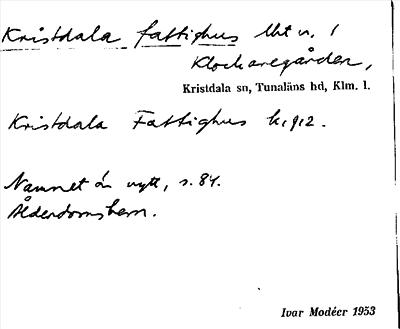 Kristdala fattighus lht u. 1
Klockaregården,
Kristdala sn, Tunaläns hd, Klm. l.
Kristdala Fattighus k1912.
Namnet är nytt, s. 84.
Ålderdomshem.
Ivar Modéer 1953